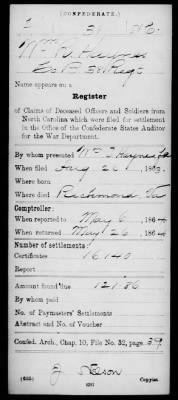 (CONFEDERATE.)
31 N.C.
Wm R Haynes
Co B 31 Regt
Name appears on a
Register
of Claims of Deceased Officers and Soldiers from
North Carolina which were filed for settlement
in the Office of the Confederate States Auditor
for the War Department.
By whom presented Wm Haynes
When filed Aug 26, 1863.
Where born
Where died Richmond Va
Comptroller:
When reported to May 6, 1864
When returned May 26, 1864
Number of settlements:
Certificates 16140
Report
Amount found due 121.86
By whom paid
No. of Paymasters' Settlements
Abstract and No. of Voucher
Confed. Arch., Chap. 10, File No. 32, page 39
J Nelson
(635)
Copyist.